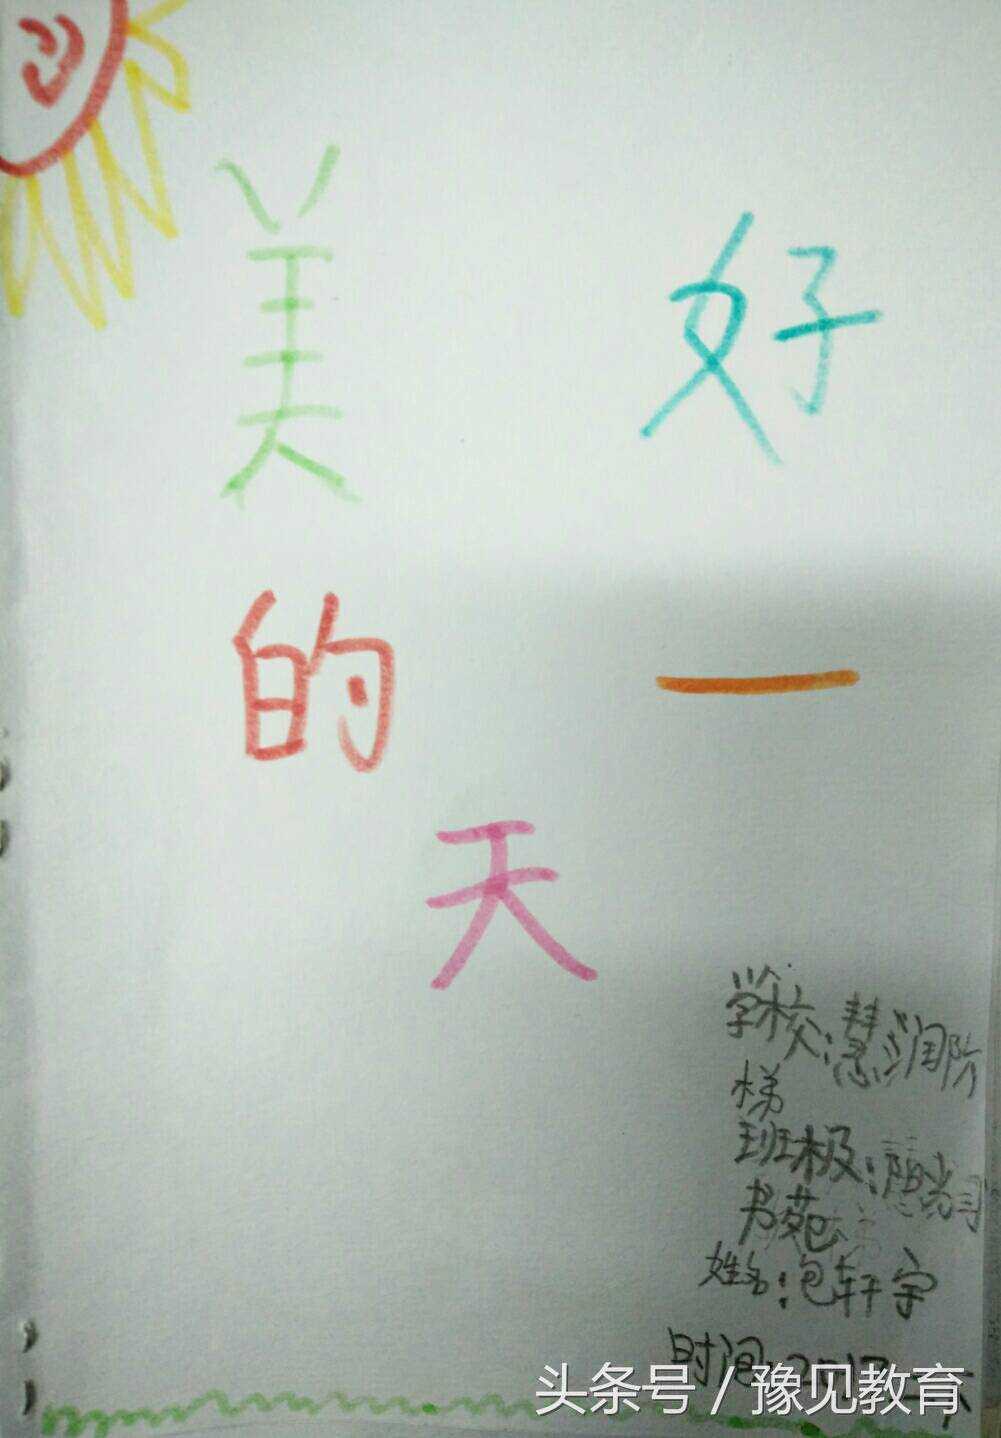 美好
的一
天
学校:慧润阶
梯
班极:阳光
书苑
姓名:包轩宇
时间:2017
头条号/豫见教育